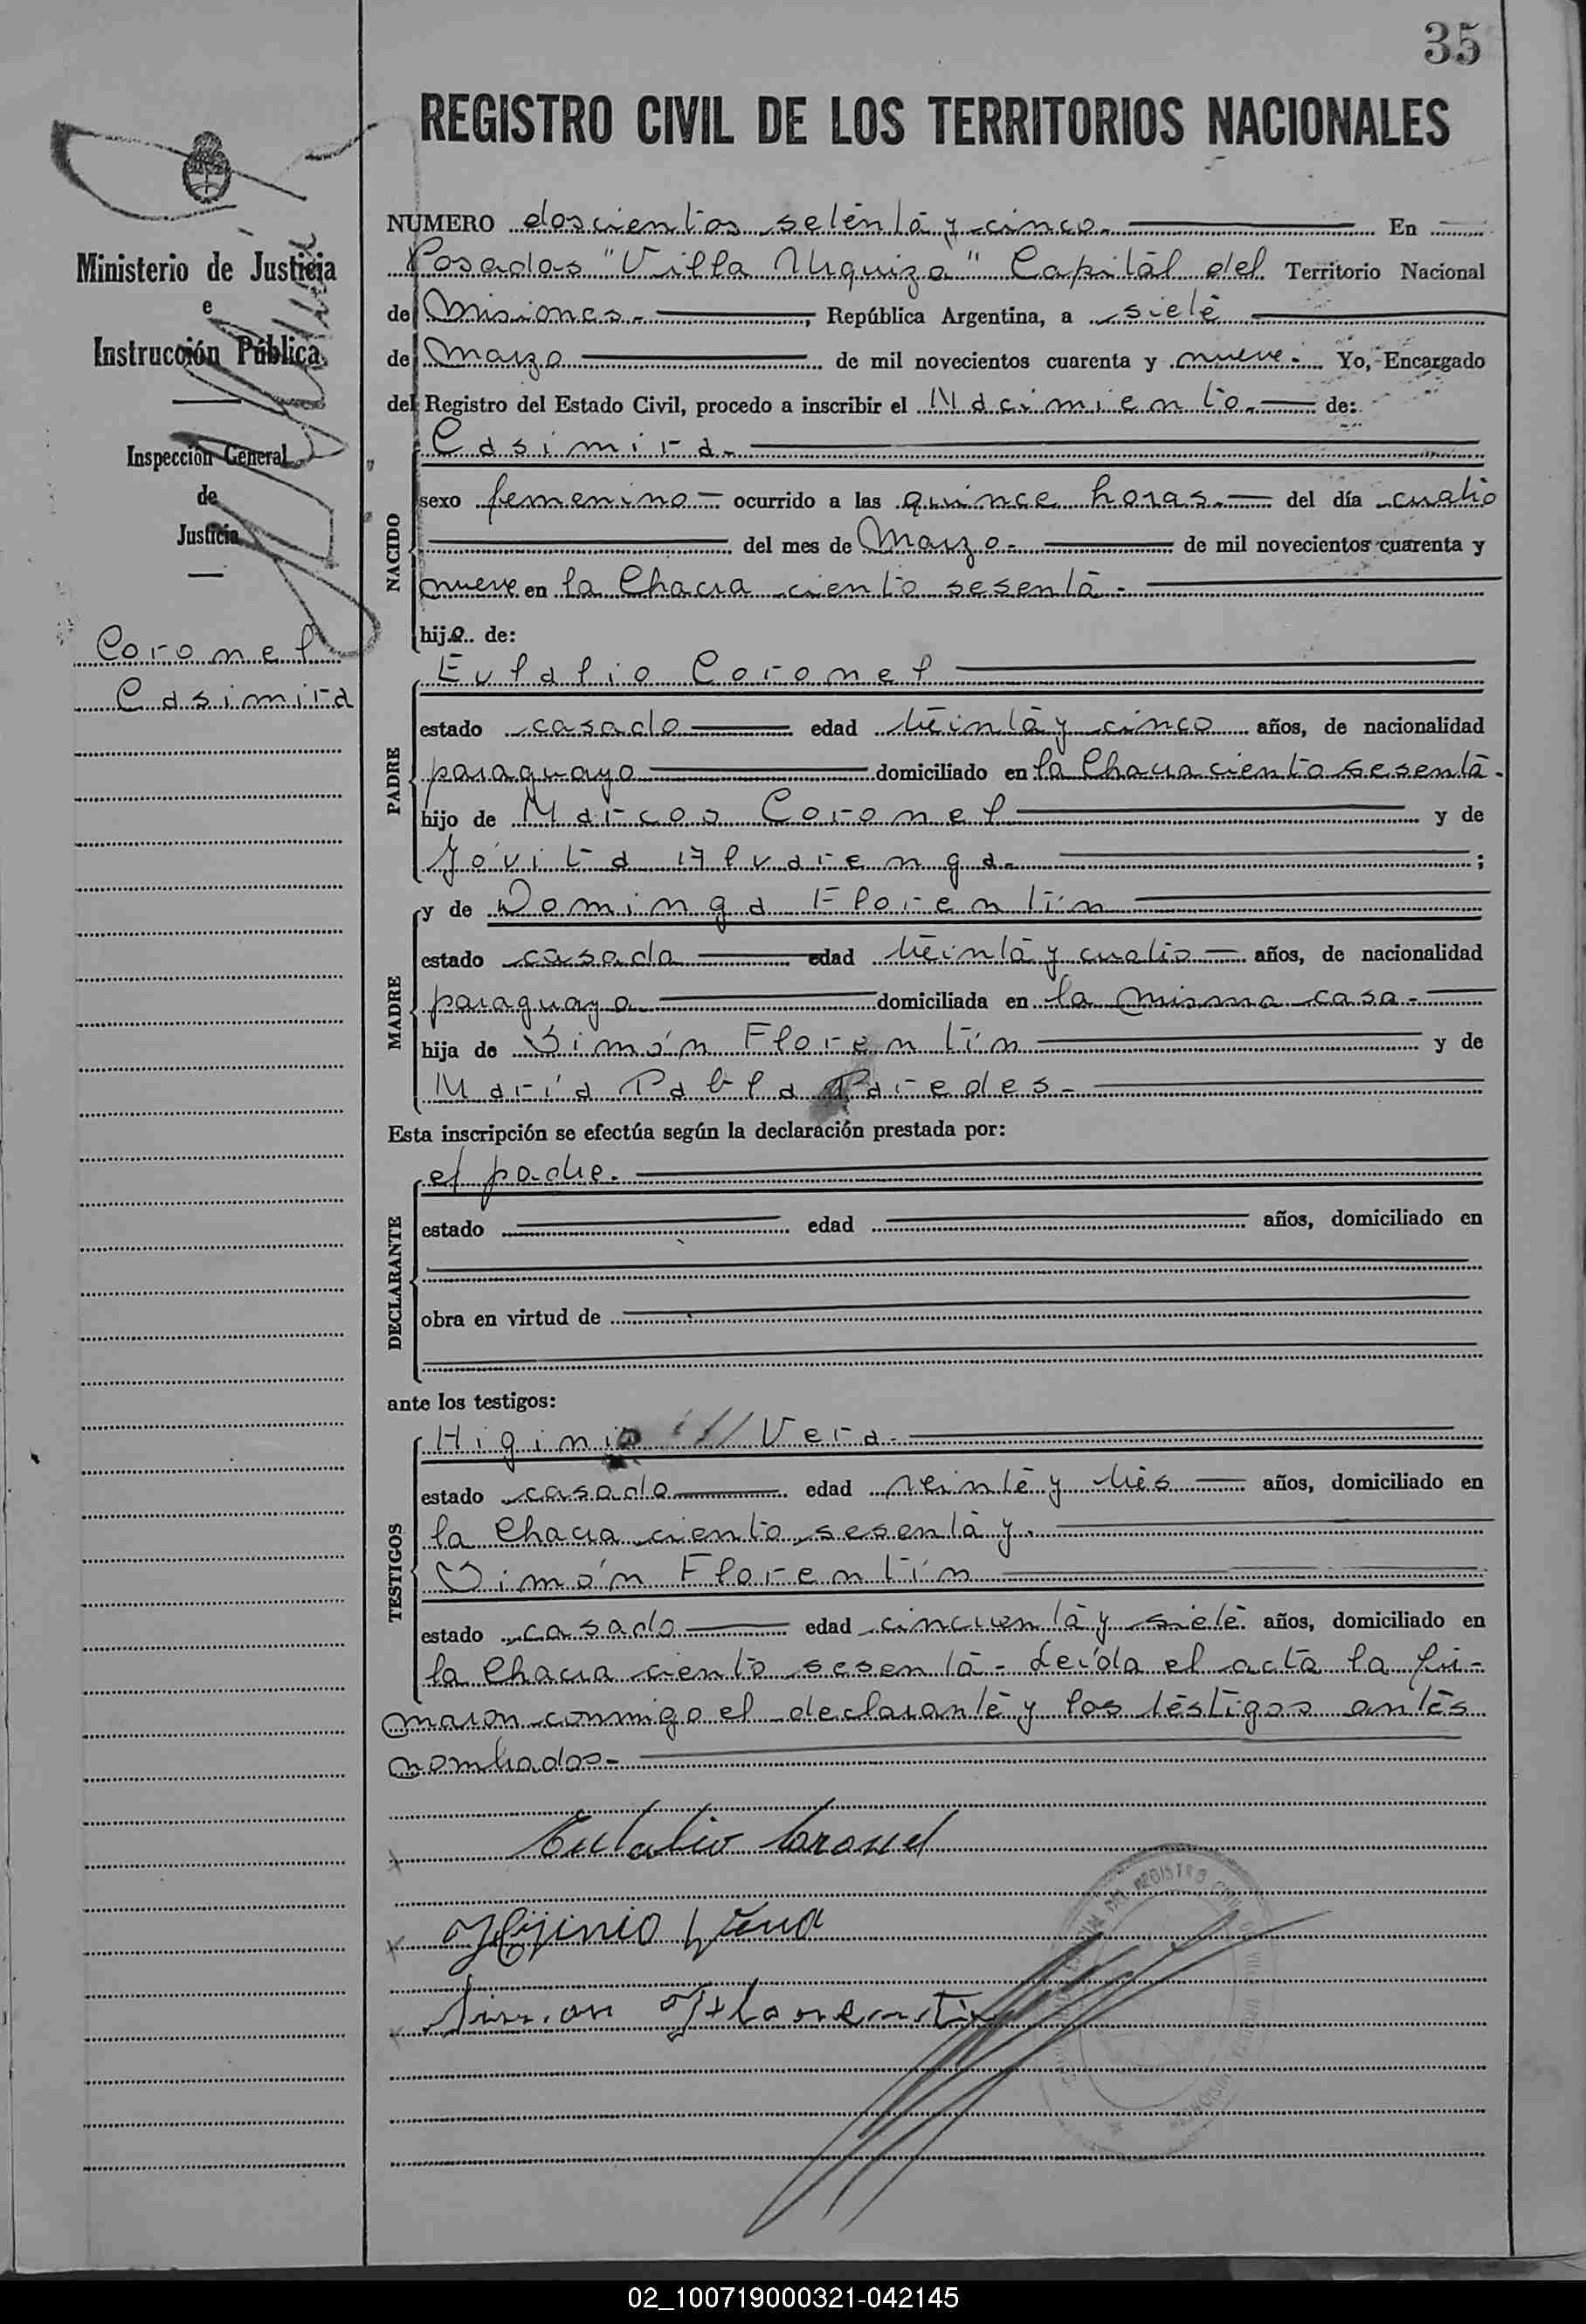 35
REGISTRO CIVIL DE LOS TERRITORIOS NACIONALES
Ministerio de Justicia
e
Instrucción Pública
Inspección General
de
Justicia
Coronel
Casimira
NUMERO doscientos setenta y cinco. En
Posadas "Villa Urquiza" Capital del Territorio Nacional
de Misiones.-, República Argentina, a siete
de Marzo de mil novecientos cuarenta y nueve.- Yo, Encargado
del Registro del Estado Civil, procedo a inscribir el Nacimiento.- de:
Casimira.-
NACIDO
sexo femenino- ocurrido a las quince horas.- del día cuatro
del mes de Marzo.- de mil novecientos cuarenta y
nueve en la Chacra ciento sesenta.-
hija de:
Eulalio Coronel
PADRE
estado casado edad treinta y cinco años, de nacionalidad
paraguayo domiciliado en la Chacra ciento sesenta.
hijo de Marcos Coronel y de
Jóvita Alvarenga.- ;
MADRE
y de Dominga Florentín
estado casada edad treinta y cuatro años, de nacionalidad
paraguaya domiciliada en la misma casa.-
hija de Simón Florentín y de
María Pabla Paredes.-
Esta inscripción se efectúa según la declaración prestada por:
DECLARANTE
el padre.
estado edad años, domiciliado en
obra en virtud de
ante los testigos:
TESTIGOS
Higinio Vera.-
estado casado edad veinte y tres años, domiciliado en
la Chacra ciento sesenta y.
Simón Florentín
estado casado edad cincuenta y siete años, domiciliado en
la Chacra ciento sesenta.- Leída el acta la fir-
maron conmigo el declarante y los testigos antes
nombrados.-
Eulalio Coronel
Hijinio Vera
Simon Florentin
02_100719000321-042145